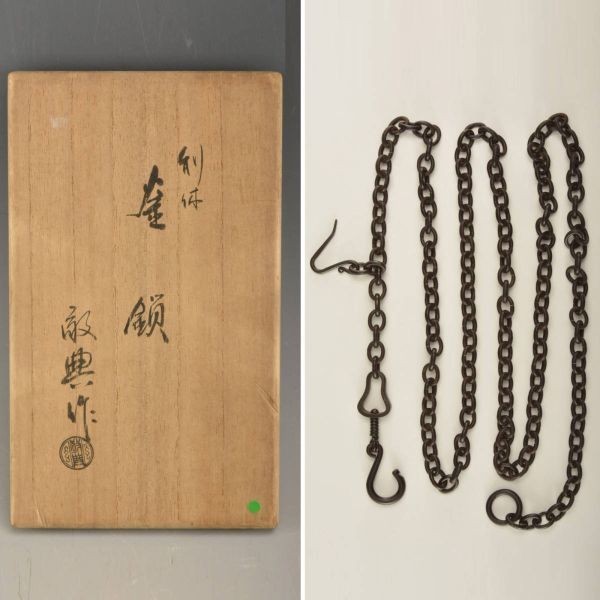 利休
釜
鎖
敬典作